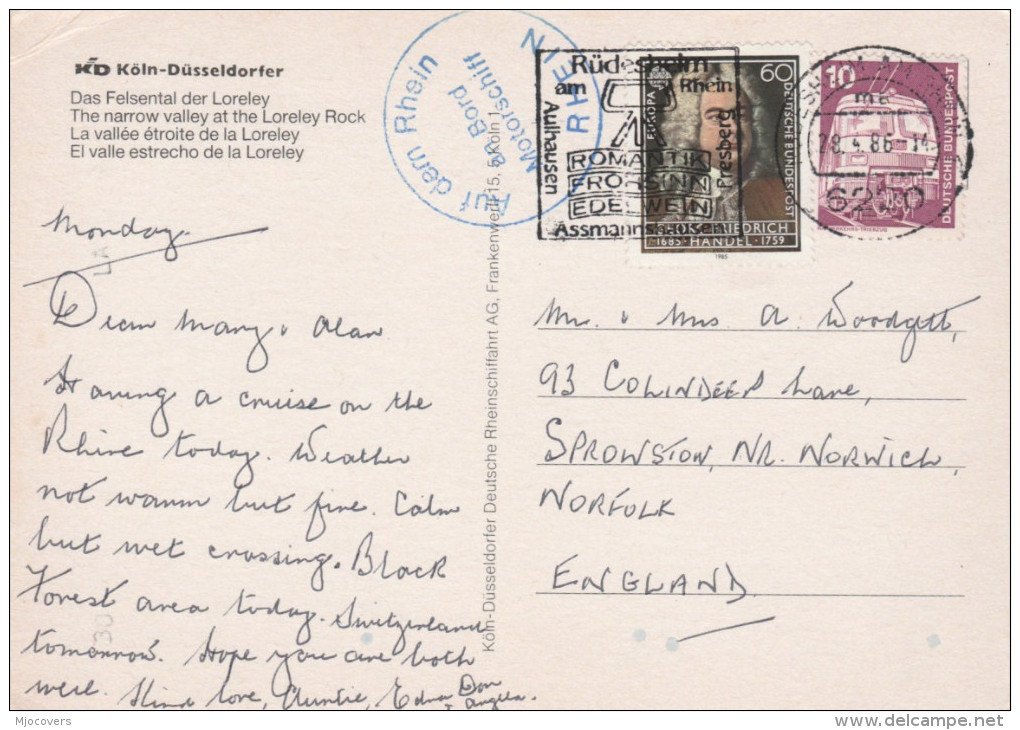 KD Köln-Düsseldorfer
Das Felsental der Loreley
The narrow valley at the Loreley Rock
La vallée étroite de la Loreley
El valle estrecho de la Loreley
Auf dem Rhein
an Bord
Motorschiff
RHEIN
Rüdesheim
am Rhein
Aulhausen
Presberg
ROMANTIK
FROHSINN
EDELWEIN
Assmannshausen
60
EUROPA
DEUTSCHE BUNDESPOST
GEORG FRIEDRICH
1685 · HÄNDEL · 1759
1985
10
DEUTSCHE BUNDESPOST
28.4.86
6220
Monday.
Dear Mary & Alan
Having a cruise on the
Rhine today. Weather
not warm but fine. Calm
but wet crossing. Black
Forest area today. Switzerland
tomorrow. Hope you are both
well. Kind love, Auntie, Edna Don
& Angela.
Köln-Düsseldorfer Deutsche Rheinschiffahrt AG, Frankenwerft 15, 5 Köln 1
Mr. & Mrs A. Woodgett,
93 COLINDEEP Lane,
SPROWSTON, NR. NORWICH,
NORFOLK
ENGLAND
Mjocovers
delcampe.net